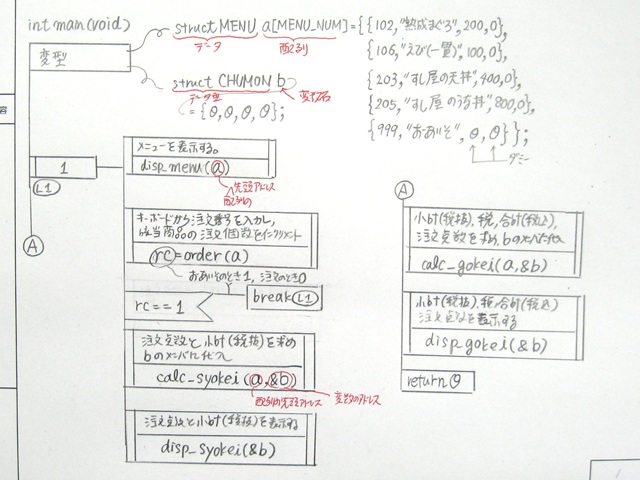 int main(void)
struct MENU a[MENU_NUM]={{102,"熟成まぐろ",200,0},
データ 配列
{106,"えび(一貫)",100,0},
変型
struct CHUMON b
データ型 変数名
={0,0,0,0};
{203,"すし屋の天丼",400,0},
{205,"すし屋のうな丼",800,0},
{999,"おあいそ",0,0}};
ダミー
1
L1
A
メニューを表示する。
disp_menu(a)
先頭アドレス
配列の
キーボードから注文番号を入力し,
該当商品の注文個数をインクリメント
rc=order(a)
おあいそのとき1,注文のとき0
rc==1
break L1
注文点数と小計(税抜)を求め
bのメンバに代入
calc_syokei(a,&b)
配列の先頭アドレス 変数のアドレス
注文点数と小計(税抜)を表示する
disp_syokei(&b)
A
小計(税抜),税,合計(税込),
注文点数を求め,bのメンバに代入
calc_gokei(a,&b)
小計(税抜),税,合計(税込)
注文点数を表示する
disp_gokei(&b)
return 0